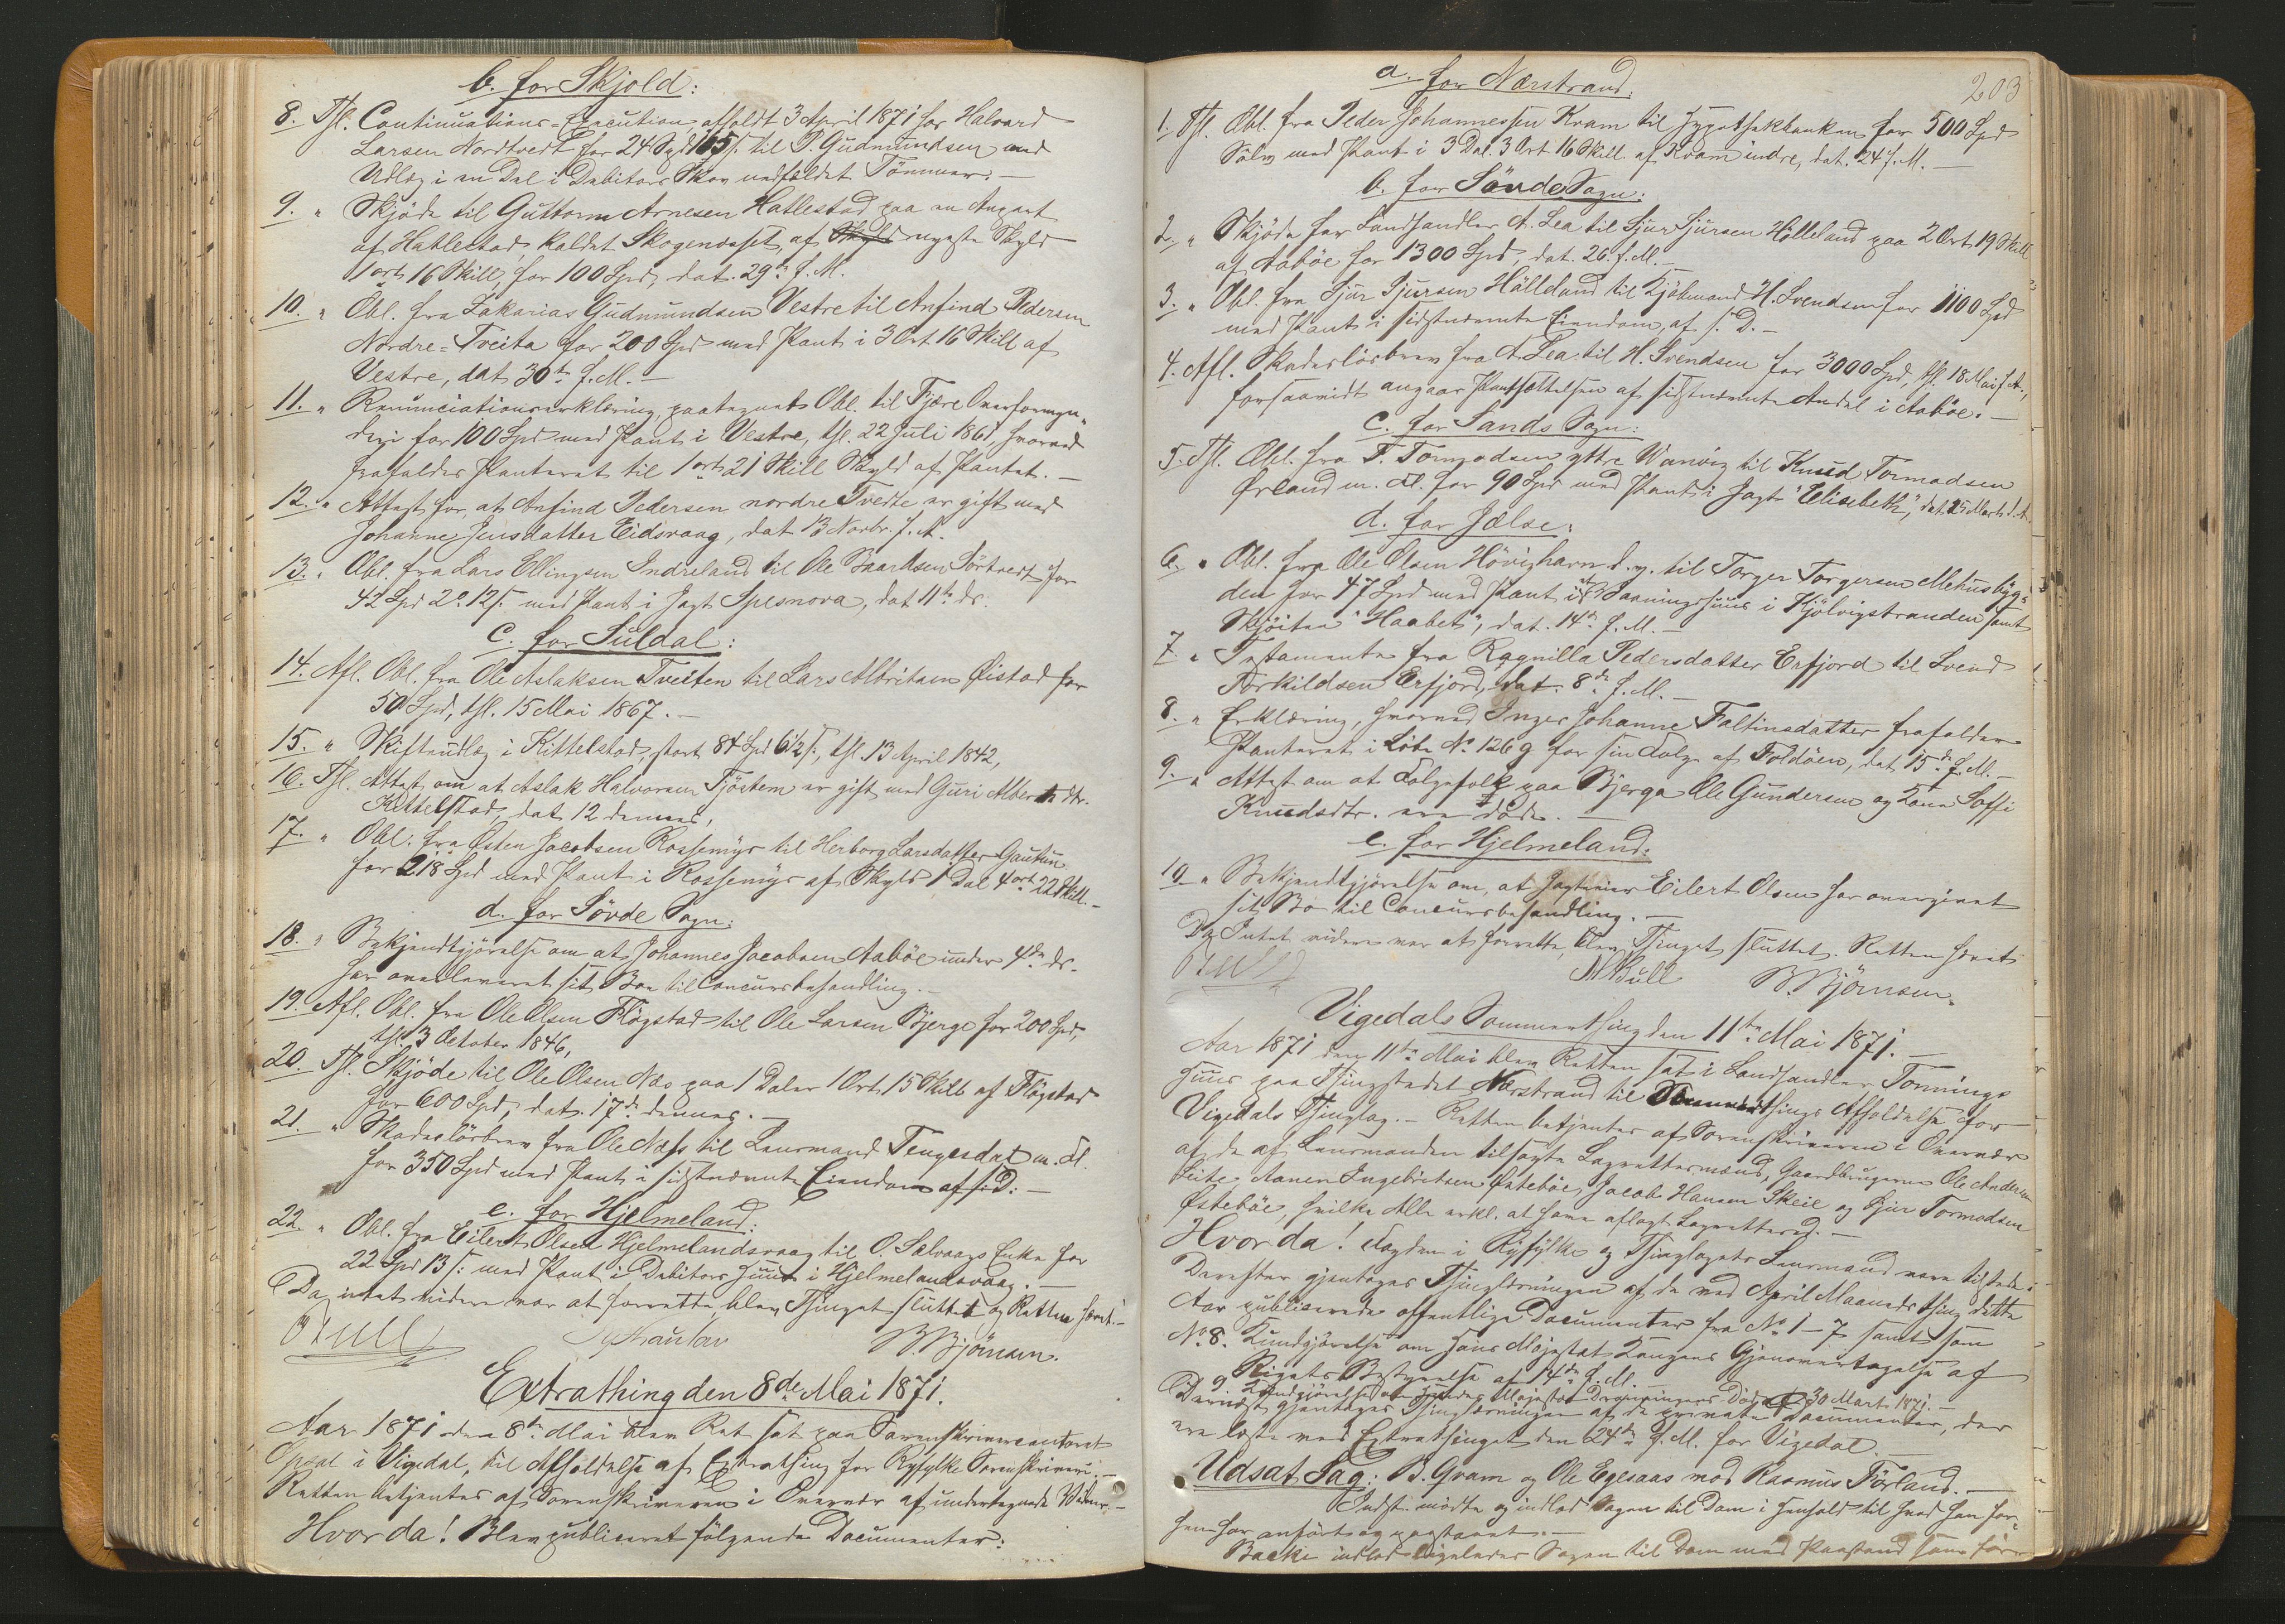 b. for Skjold:
8. Thl. Continuations-Execution afholdt 3 April 1871 hos Halvard
Larsen Nordtvedt for 24 Spd 105 s. til P. Gudmundsen med
Udlæg i en Del i Debitors Skov nedfældet Tömmer. —
9. " Skjöde til Guttorm Arnesen Hatlestad paa en Anpart
af Hatlestad, kaldet Skogeneset, af nyeste Skyld
1 ort 16 Skill, for 100 Spd, dat. 29de f. M.
10. " Obl. fra Zakarias Gudmundsen Vestre til Anfind Pedersen
Nordre-Tveita for 200 Spd med Pant i 3 Ort 16 Skill af
Vestre, dat 30te f. M. —
11. " Renunciationserklæring, paategnet Obl. til Fjære Overformyn-
deri for 100 Spd med Pant i Vestre, thl. 22 Juli 1861, hvorved
frafaldes Panteret til 1 ort 21 Skill Skyld af Pantet. —
12. " Attest for at Anfind Pedersen nordre Tvedte er gift med
Johanne Jensdatter Eidsvaag, dat 13 Novbr. f. A.
13. " Obl. fra Lars Ellingsen Indreland til Ole Baardsen Sörtvedt for
42 Spd 2 o. 12 s. med Pant i Jagt Spesnova, dat 11te ds.
c. for Suldal:
14. Afl. Obl. fra Ole Aslaksen Tveiten til Lars Albritsen Öistad for
50 Spd, thl. 15 Mai 1867. —
15. " Skifteudlæg i Kittelstad, stort 84 Spd 6½ s., thl. 13 April 1842,
16. Thl. Attest om at Aslak Halvorsen Fjöstem er gift med Guri Alberts dtr.
Kittelstad, dat 12 dennes,
17. " Obl. fra Östen Jacobsen Rossemyr til Herborg Larsdatter Gautun
for 218 Spd med Pant i Rossemyr af Skyld 1 Dal 4 ort 22 Skill. —
d. for Sövde Sogn:
18. " Bekjendtgjörelse om at Johannes Jacobsen Aaböe under 4de ds.
har overleveret sit Boe til Concursbehandling. —
19. Afl. Obl. fra Ole Olsen Flögstad til Ole Larsen Bjerge for 200 Spd,
thl. 3 October 1846,
20. Thl. Skjöde til Ole Olsen Næs paa 1 Daler 1 Ort 15 Skill af Flögstad
for 600 Spd, dat. 17de dennes. —
21. " Skadeslösbrev fra Ole Næss til Lensmand Tengesdal m. Fl.
for 350 Spd med Pant i sidstnævnte Eiendom af s. D. —
e. for Hjelmeland:
22. " Obl. fra Eilert Olsen Hjelmelandsvaag til O. Salvaags Enke for
22 Spd 13 s. med Pant i Debitors Huus i Hjelmelandsvaag. —
Da intet videre var at forrette, blev Thinget sluttet og Retten hævet. —
B. Björnsen.
Extrathing den 8de Mai 1871.
Aar 1871 den 8de Mai blev Ret sat paa Sorenskrivercontoret
Opsal i Vigedal, til Afholdelse af Extrathing for Ryfylke Sorenskriveri. —
Retten betjentes af Sorenskriveren i Overvær af undertegnede Vidner. —
Hvorda! Blev publiceret følgende Documenter:
203
a. for Nærstrand:
1. Thl. Obl. fra Peder Johannessen Kvam til Hypothekbanken for 500 Spd
Sölv med Pant i 3 Dal. 3 Ort 16 Skill. af Kvam indre, dat. 24 f. M. —
b. for Sövde Sogn:
2. " Skjöde fra Landhandler A. Lea til Sjur Sjursen Hölleland paa 2 Ort 19 Skill
af Aaböe for 1300 Spd, dat. 26. f. M. —
3. " Obl. fra Sjur Sjursen Hölleland til Kjöbmand H. Svendsen for 1100 Spd
med Pant i sidstnævnte Eiendom, af s. D. —
4. Afl. Skadeslösbrev fra A. Lea til H. Svendsen for 3000 Spd, thl. 18 Mai f. A.,
forsaavidt angaar Pantsættelsen af sidstnævnte Andel i Aaböe. —
c. for Sands Sogn:
5. Thl. Obl. fra T. Tormodsen yttre Warvig til Knud Tormodsen
Örland m. Fl. for 90 Spd med Pant i Jagt "Elisebeth", dat. 25 Marts d. A.
d. for Jelse:
6. " Obl. fra Ole Olsen Hövighavn d. y. til Torger Torgersen Mehus byg-
den for 47 Spd med Pant i et Vaaningshuus i Kjölvigstranden samt
Skjöiten "Haabet", dat. 14de f. M. —
7. " Testamente fra Ragnilla Pedersdatter Erfjord til Svend
Torkildsen Erfjord, dat. 8de f. M. —
8. " Erklæring, hvorved Inger Johanne Faltinsdatter frafalder
Panteret i Löbe No. 126 g for sin Dolge af Foldöen, dat 15de f. M. —
9. " Attest om at Folgefolk paa Bjerga Ole Gundersen og Kone Soffi
Knudsdtr. ere döde. —
e. for Hjelmeland:
10. " Bekjendtgjörelse om, at Jagteier Eilert Olsen har overgivet
sit Bo til Concursbehandling. —
Da Intet videre var at forrette, blev Thinget sluttet. Retten hævet
M Bull B. Björnsen.
Vigedals Sommerthing den 11te Mai 1871. —
Aar 1871 den 11te Mai blev Retten sat i Landhandler Tonnings
Huus paa Thingstedet Nærstrand til Sommerthings Afholdelse for
Vigedals Thinglag. — Retten betjentes af Sorenskriveren i Overvær
af de af Lensmanden tilsagte Lagrettesmænd, Gaardbrugerne Ole Andersen
Leite, Aanen Ingebretsen Östeböe, Jacob Hansen Skeie og Sjur Tormodsen
Östeböe, hvilke Alle erkl. at have aflagt Lagretteed. —
Hvorda! Fogden i Ryfylke og Thinglagets Lensmand vare tilstede:
Derefter gjentoges Thinglæsningen af de ved April Maaneds thing dette
Aar publicerede offentlige Documenter fra No. 1 – 7 samt som
No. 8. Kundgjörelse om Hans Majestæt Kongens Gjenovertagelse af
Rigets Bestyrelse af 14de f. M. —
9 Kundgjörelse om Hendes Majestæt Dronningens Död af 30 Marts 1871. —
Dernæst gjentoges Thinglæsningen af de private Documenter, der
ere læste ved Extrathinget den 24de f. M. for Vigedal. —
Udsat Sag: B. Gram og Ole Egesaas mod Rasmus Förland. —
Indst. mödte og indlod Sagen til Dom i Henhold til hvad han for-
hen har anfört og paastaaet. —
Backe indlod ligeledes Sagen til Dom med Paastand som för